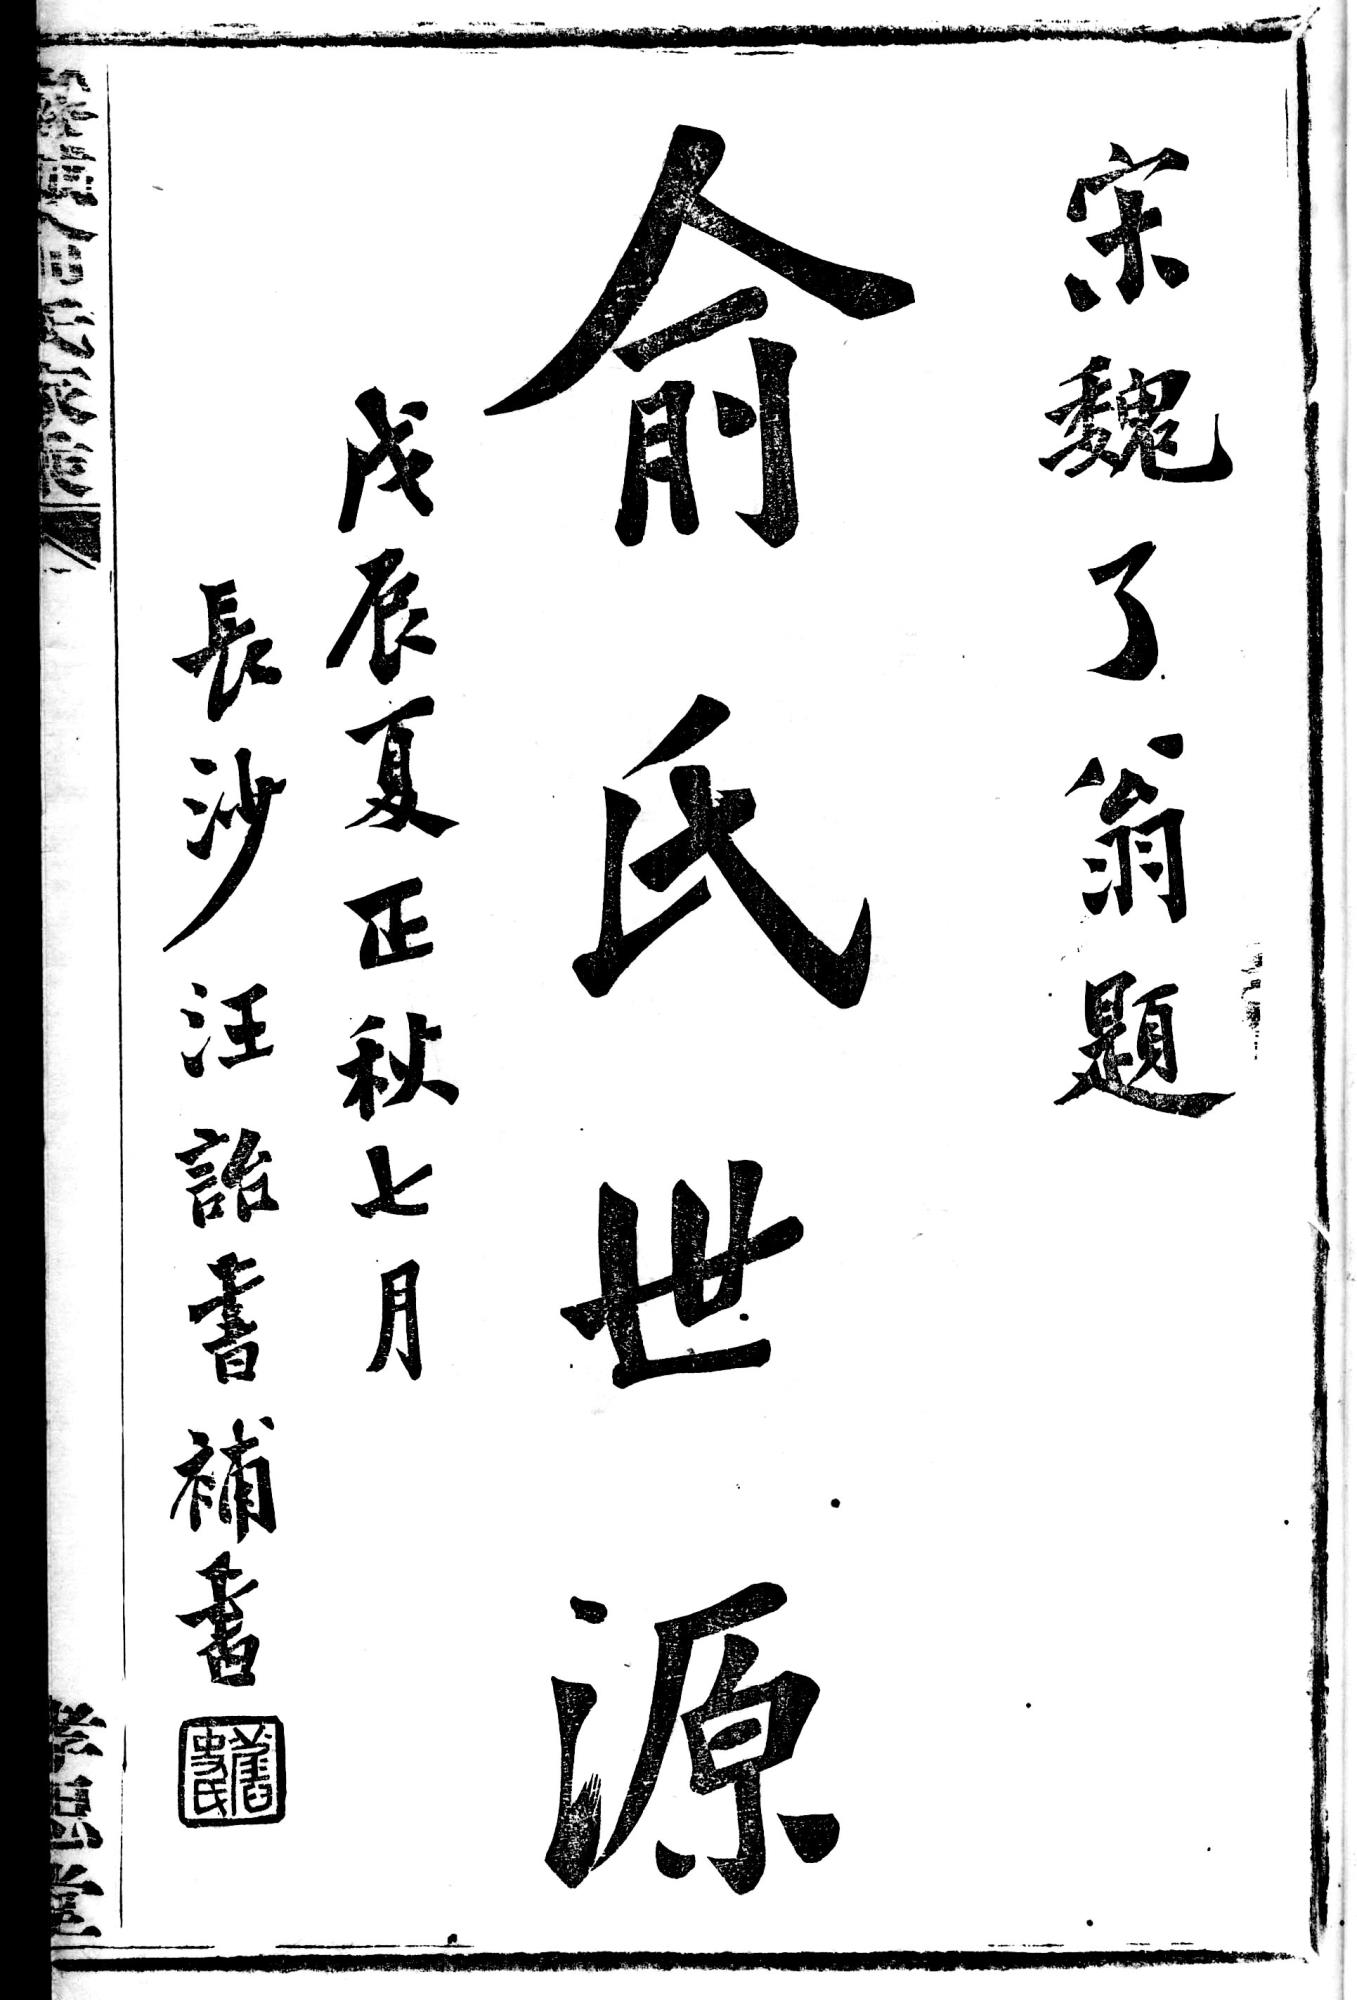 宋魏了翁題
俞氏世源
戊辰夏正秋七月
長沙汪詒書補書
舊史氏